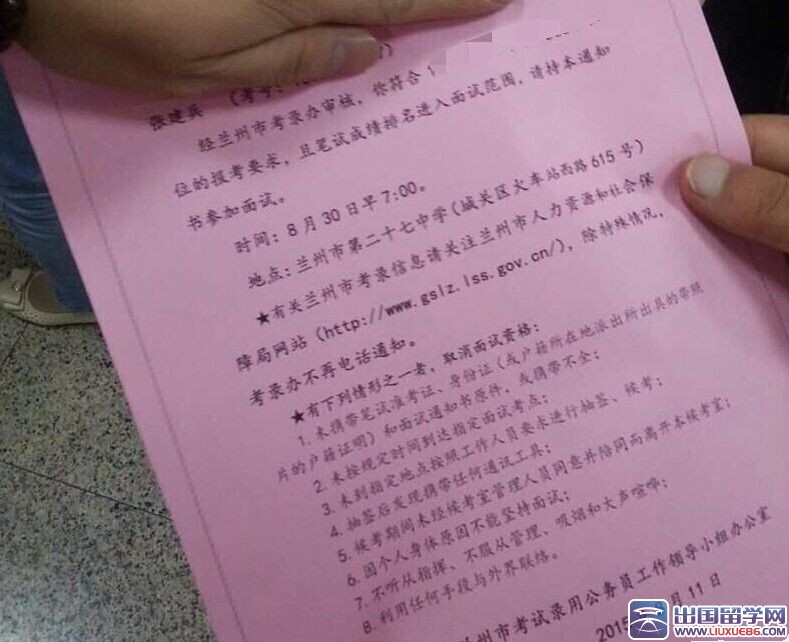 张建兵 （考号：
经兰州市考录办审核，你符合
位的报考要求，且笔试成绩排名进入面试范围，请持本通知
书参加面试。
时间：8月30日早7:00。
地点：兰州市第二十七中学（城关区火车站西路615号）
★有关兰州市考录信息请关注兰州市人力资源和社会保
障局网站（http://www.gslz.lss.gov.cn/），除特殊情况，
考录办不再电话通知。
★有下列情形之一者，取消面试资格：
1.未携带笔试准考证、身份证（或户籍所在地派出所出具的带照
片的户籍证明）和面试通知书原件，或携带不全；
2.未按规定时间到达指定面试考点；
3.未到指定地点按照工作人员要求进行抽签、候考；
4.抽签后发现携带任何通讯工具；
5.候考期间未经候考室管理人员同意并陪同而离开本候考室；
6.因个人身体原因不能坚持面试；
7.不听从指挥、不服从管理、吸烟和大声喧哗；
8.利用任何手段与外界联络。
兰州市考试录用公务员工作领导小组办公室
2015 月11日
出国留学网
www.liuxue86.com